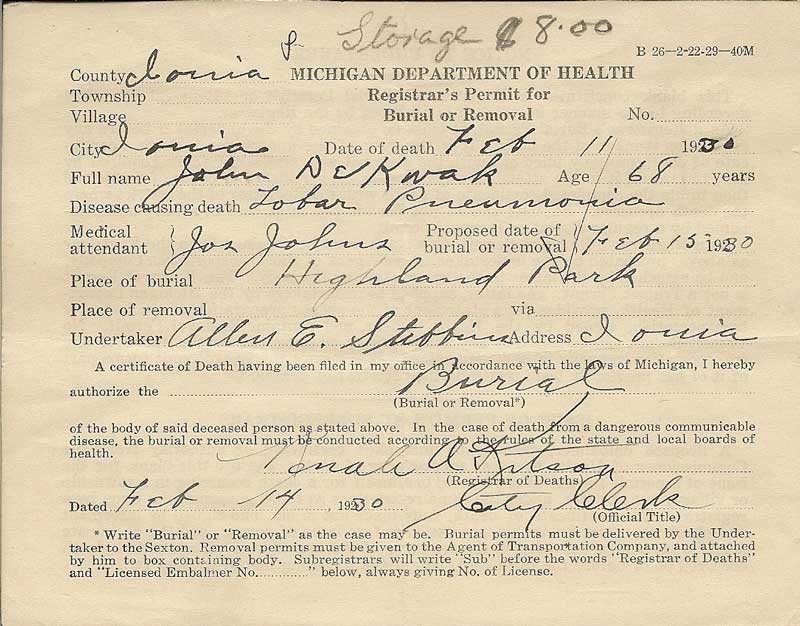 Storage $8.00
B 26—2-22-29—40M
County Ionia MICHIGAN DEPARTMENT OF HEALTH
Township Registrar's Permit for
Village Burial or Removal No.
City Ionia Date of death Feb 11 1930
Full name John DeKwak Age 68 years
Disease causing death Lobar Pneumonia
Medical attendant Jos Johns Proposed date of burial or removal Feb 15 1930
Place of burial Highland Park
Place of removal via
Undertaker Allen E. Stebbins Address Ionia
A certificate of Death having been filed in my office in accordance with the laws of Michigan, I hereby
authorize the Burial
(Burial or Removal*)
of the body of said deceased person as stated above. In the case of death from a dangerous communicable
disease, the burial or removal must be conducted according to the rules of the state and local boards of
health.
A Kitson
(Registrar of Deaths)
Dated Feb 14 1930 City Clerk
(Official Title)
* Write "Burial" or "Removal" as the case may be. Burial permits must be delivered by the Under-
taker to the Sexton. Removal permits must be given to the Agent of Transportation Company, and attached
by him to box containing body. Subregistrars will write "Sub" before the words "Registrar of Deaths"
and "Licensed Embalmer No............" below, always giving No. of License.